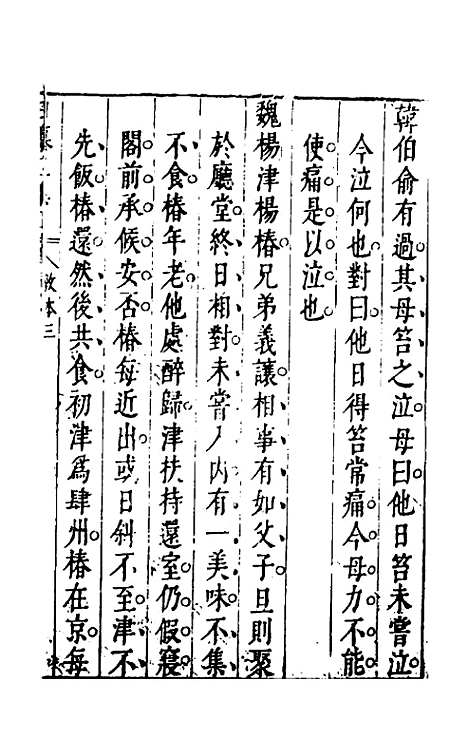 韓伯俞有過其母笞之泣母曰他日笞未嘗泣
今泣何也對曰他日得笞常痛今母力不能
使痛是以泣也
魏楊津楊椿兄弟義讓相事有如父子旦則聚
於廳堂終日相對未嘗入内有一美味不集
不食椿年老他處醉歸津扶持還室仍假寢
閤前承候安否椿每近出或日斜不至津不
先飯椿還然後共食初津爲肆州椿在京每
敦本三